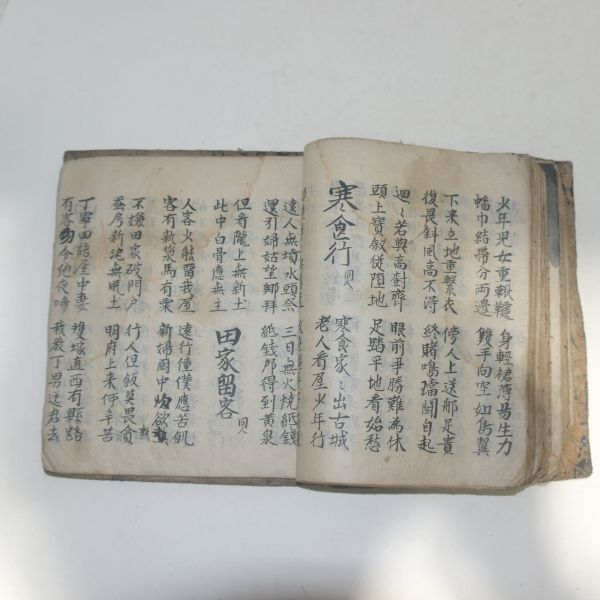 少年兒女重鞦韆 身輕裙薄易生力
蟠巾結帶分兩邊 雙手向空如鳥翼
下来立地重繫衣 傍人上送那足貴
復畏斜風高不淂 終賭鳴璫鬪自起
迴〻若與高對齊 眼前爭勝難為休
頭上寶釵從墮地 足踏平地看始愁
寒食行 同人
寒食家〻出古城
老人看屋少年行
遠人無墳水頭祭 三日無火燒紙錢
還引婦姑望鄉拜 紙錢那得到黃泉
但看隴上無新土
此中白骨應無主
田家留客 同人
人客少駐留我屋 遠行僮僕應苦飢
客有新漿馬有粟 新婦厨中炊欲熟
不嫌田家破門戶 行人但飯莫畏貧
蠶房新泥無風土 明府上来何辛苦
丁寧回語屋中妻 雙塚直西有縣路
有客勿令夜啼 我教丁男送君去